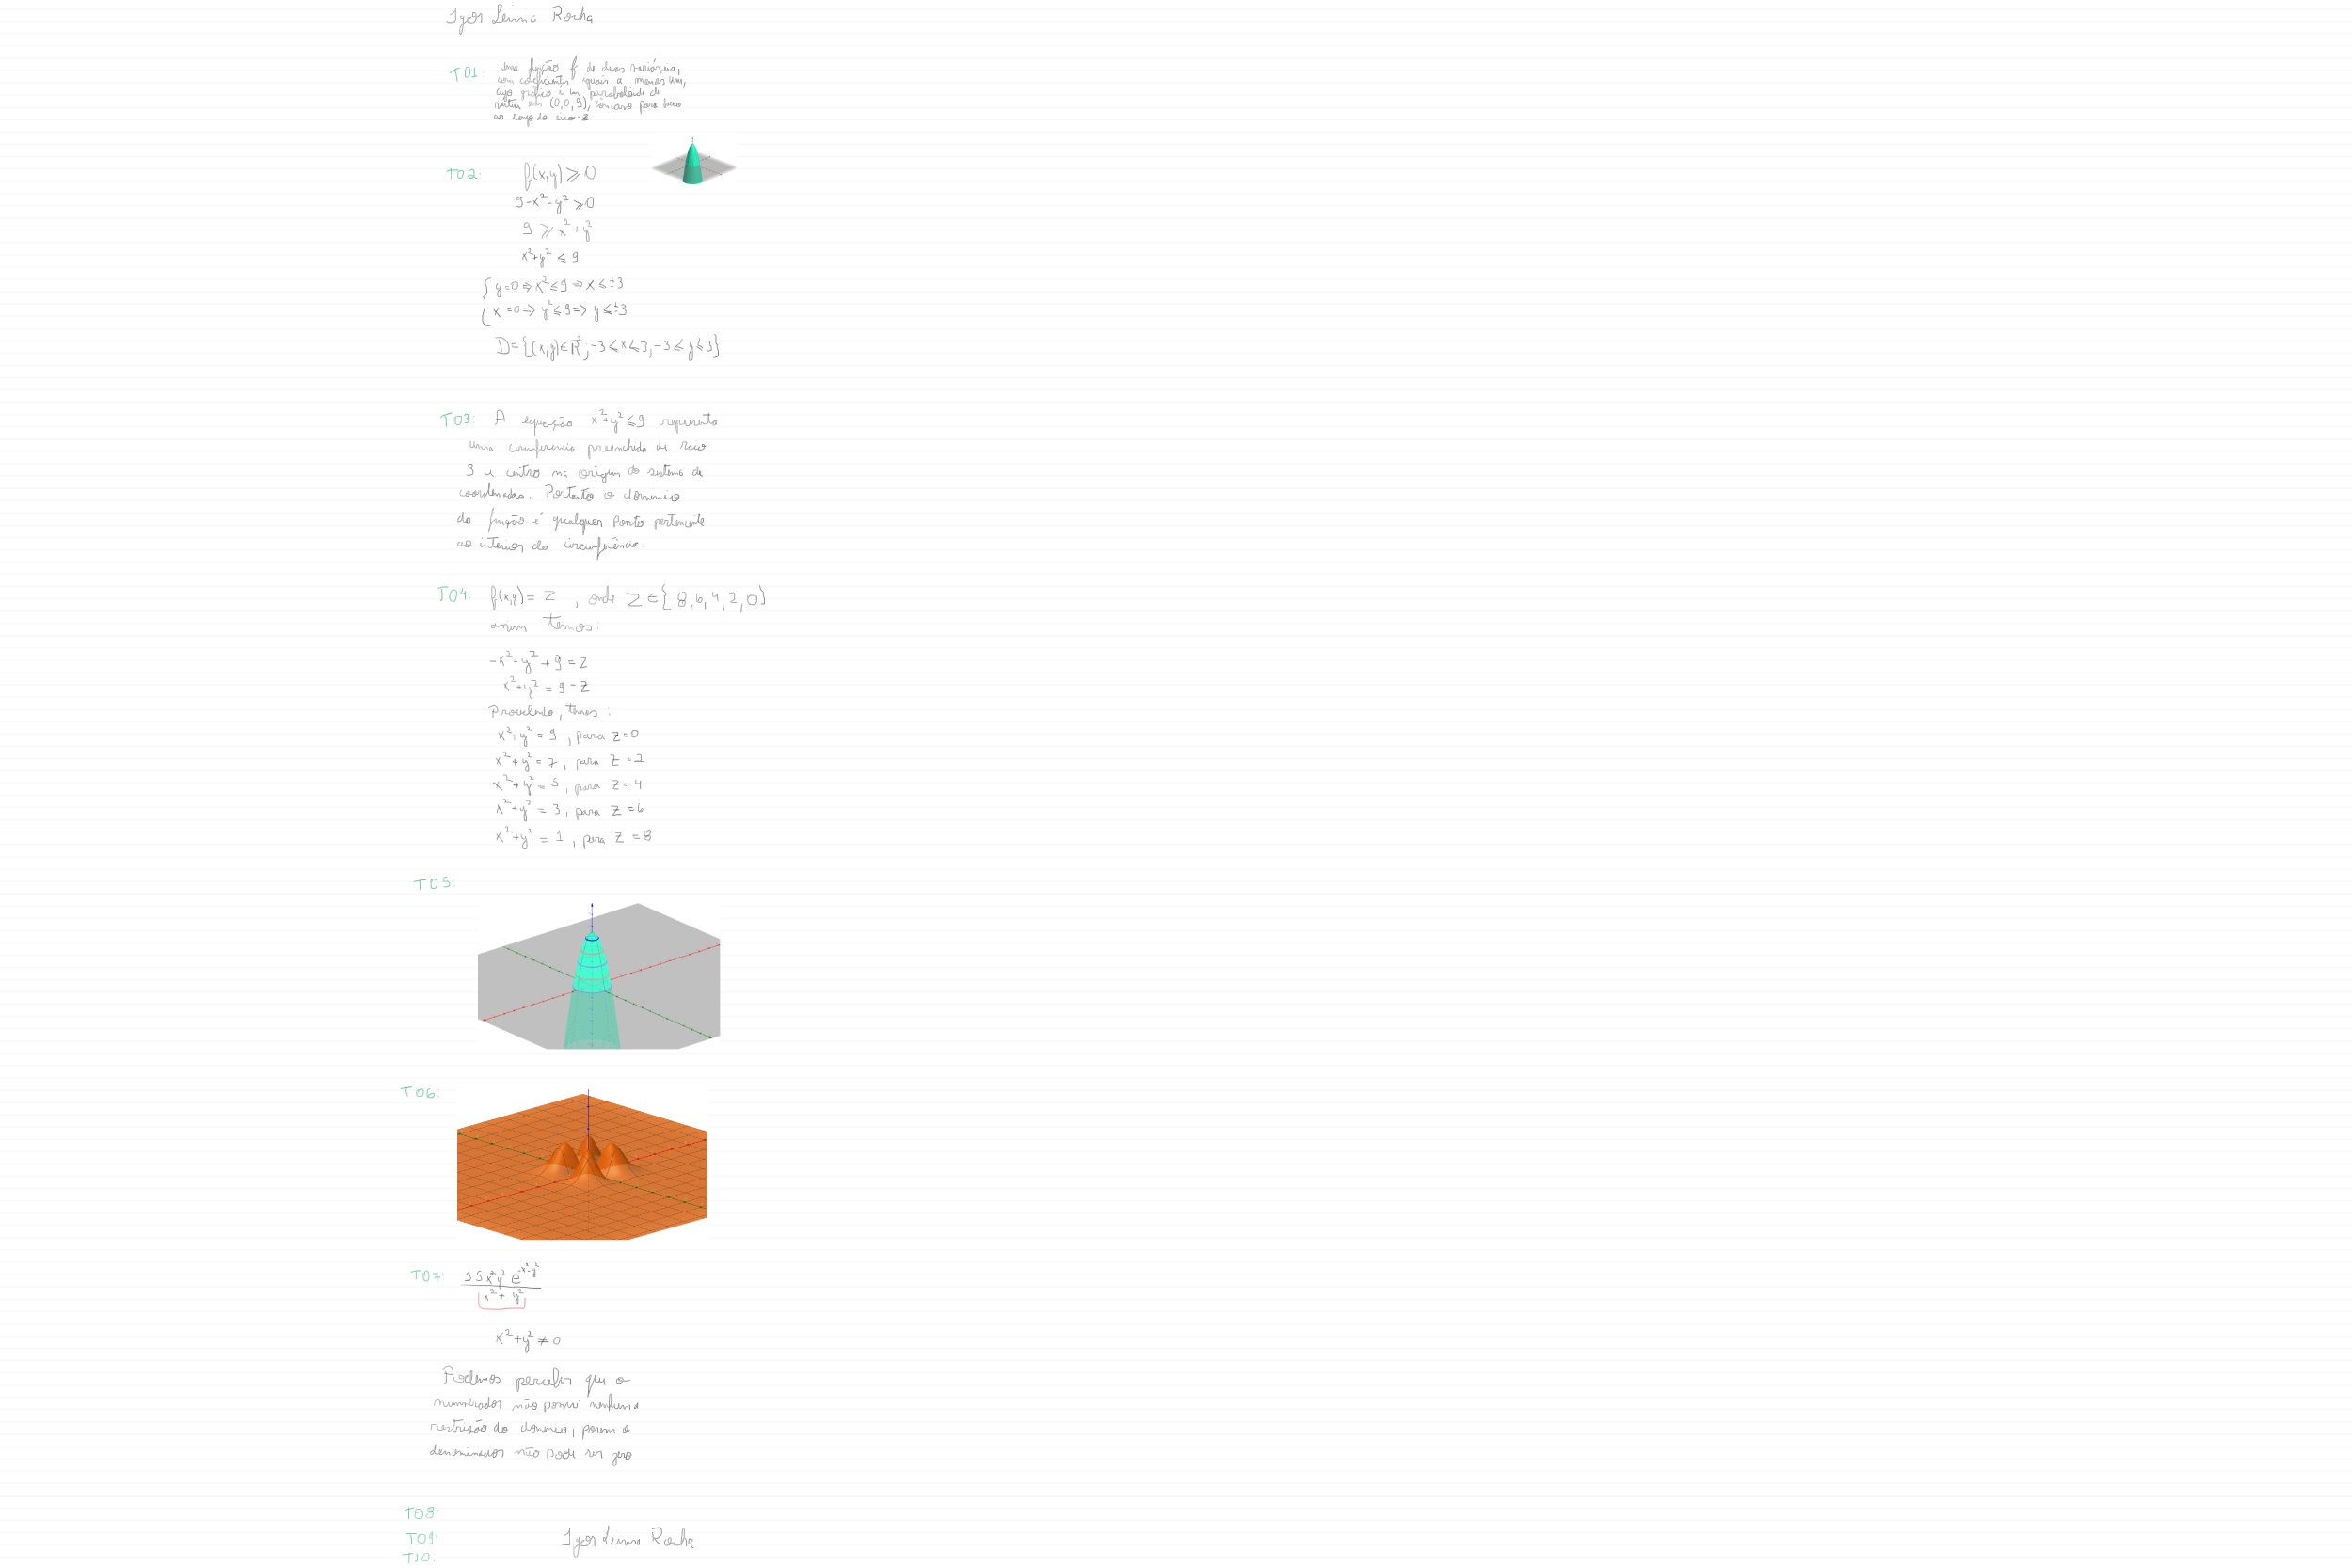 Igor Lima Rocha
T01: Uma função f de duas variáveis,
com coeficientes iguais a menos um,
cujo gráfico é um parabolóide de
vértice em (0,0,9), côncavo para baixo
ao longo do eixo-z
T02: f(x,y) ⩾ 0
9-x²-y² ⩾ 0
9 ⩾ x²+y²
x²+y² ⩽ 9
y=0 ⇒ x² ⩽ 9 ⇒ x ⩽ ±3
x=0 ⇒ y² ⩽ 9 ⇒ y ⩽ ±3
D={(x,y)∈ℝ²; -3 ⩽ x ⩽ 3, -3 ⩽ y ⩽ 3}
T03: A equação x²+y² ⩽ 9 representa
uma circunferencia preenchida de raio
3 e centro na origem do sistema de
coordenadas. Portanto o dominio
da função é qualquer ponto pertencente
ao interior da circunferência.
T04: f(x,y) = z , onde z ∈ {8,6,4,2,0}
assim temos:
-x²-y²+9 = z
x²+y² = 9-z
temos:
x²+y² = 9 , para z=0
x²+y² = 7 , para z=2
x²+y² = 5 , para z=4
x²+y² = 3 , para z=6
x²+y² = 1 , para z=8
T05:
T06:
T07: 15x²y² e^(-x²-y²)
x²+y²
x²+y² ≠ 0
Podemos perceber que o
numerador não possui nenhuma
restrição do dominio, porem o
denominador não pode ser zero
T08:
T09: Igor Lima Rocha
T10: